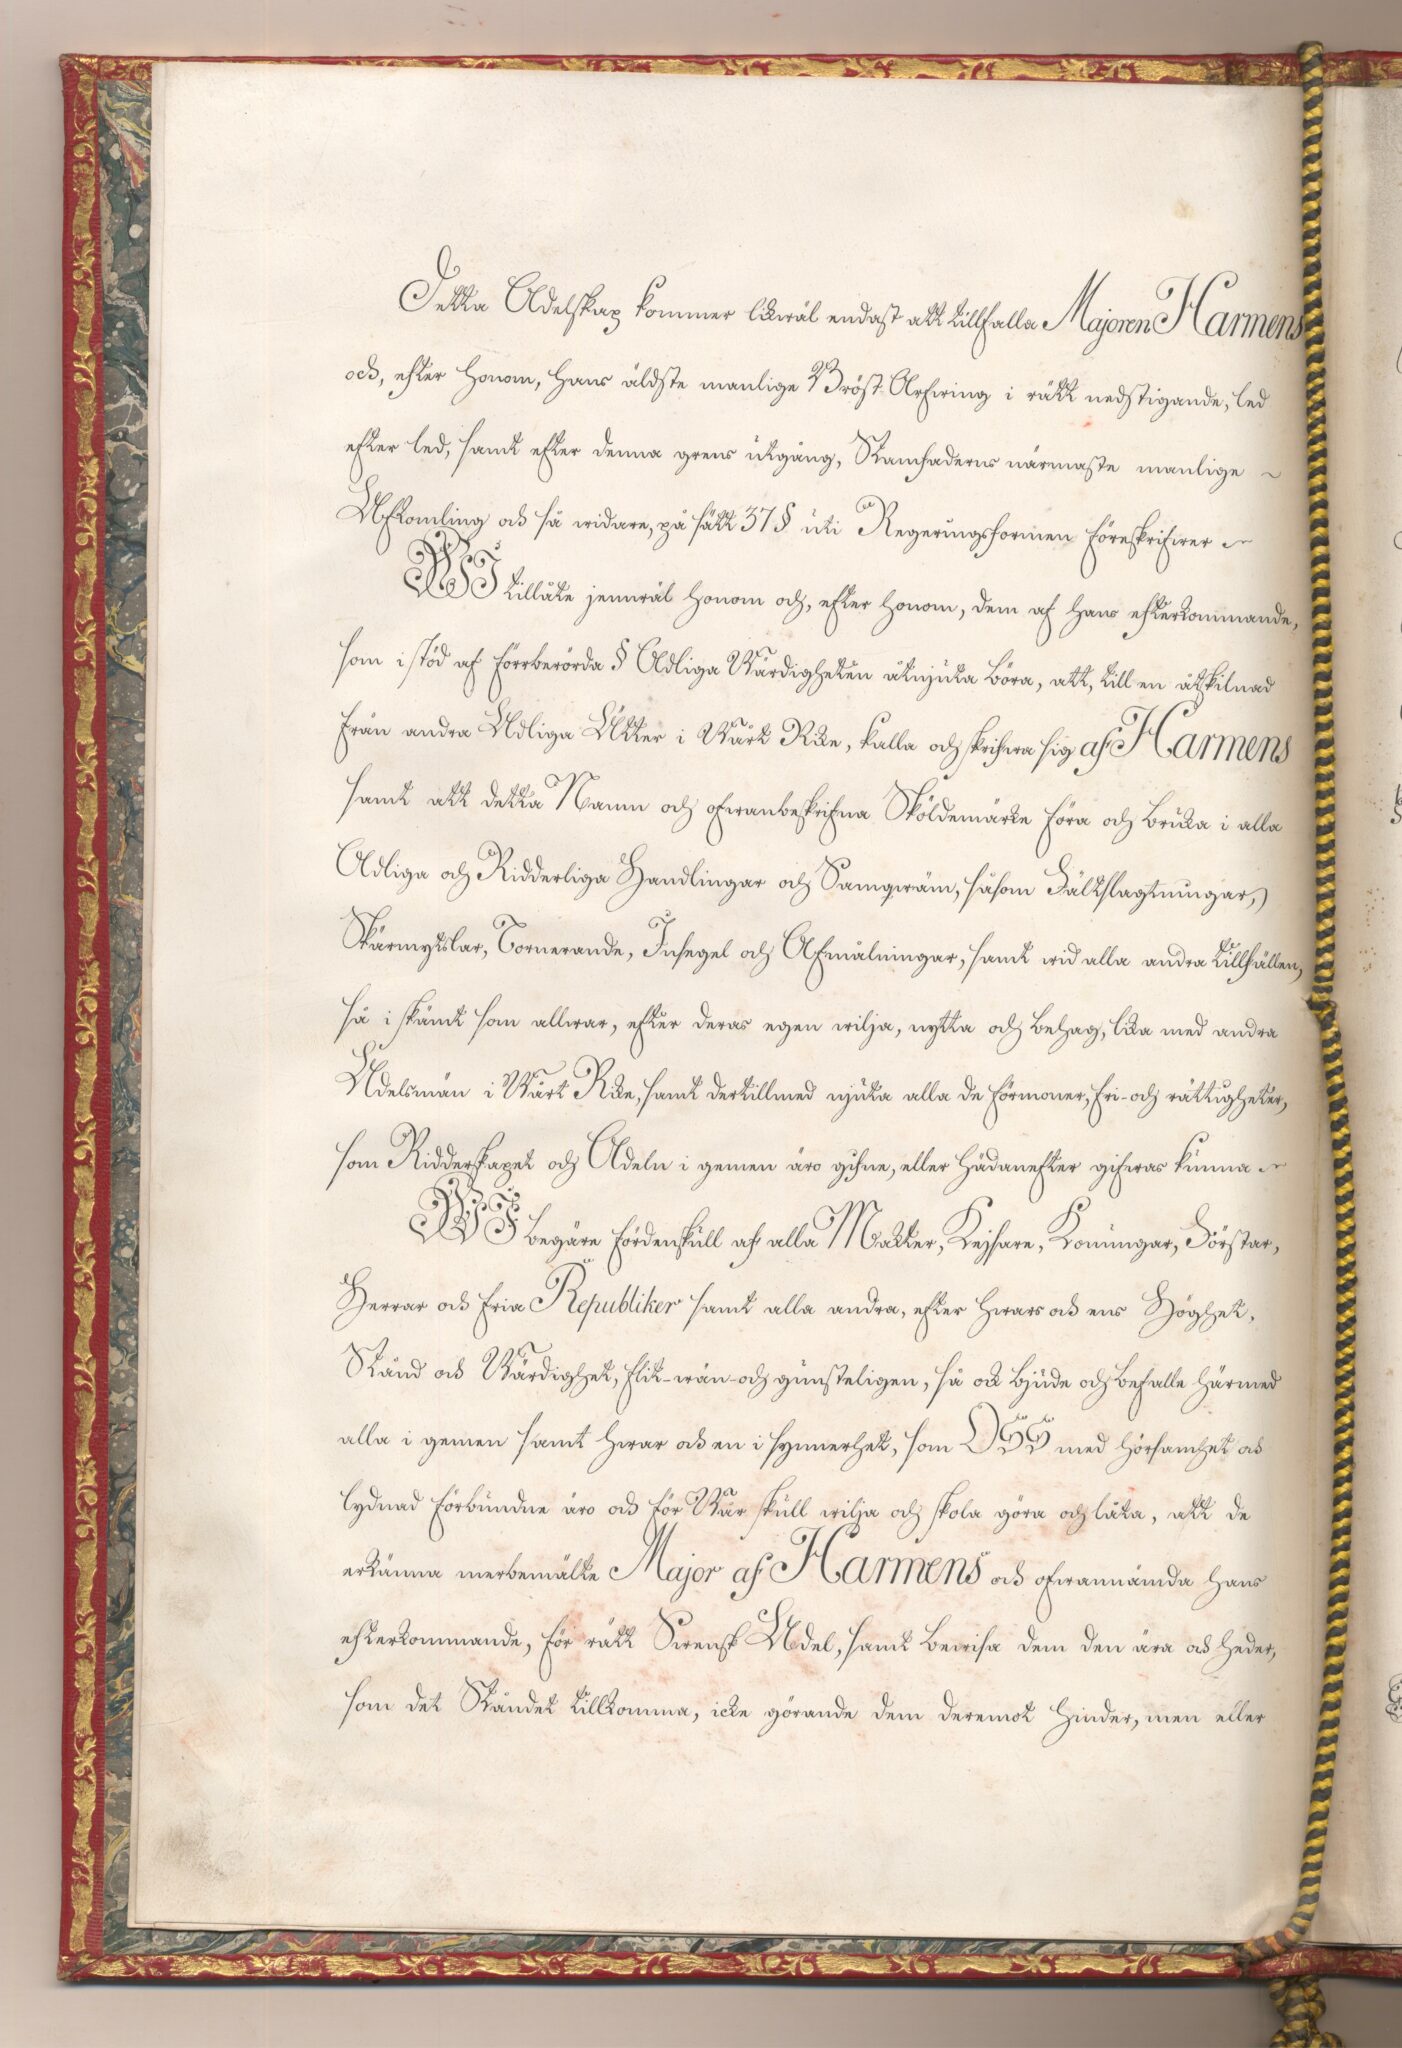 Detta Adelskap kommer likwäl endast att tillfalla Majoren Harmens
och, efter Honom, Hans äldste manlige Bröst-Arfwing i rätt nedstigande, led
efter led, samt efter denna grens utgång, Stamfaderns närmaste manlige ~
Afkomling och så widare, på sätt 37 § uti Regeringsformen föreskrifwer ~
WI tillåte jemwäl Honom och, efter Honom, dem af Hans efterkommande,
som i stöd af förrberörda § Adliga Wärdigheten åtnjuta böra, att, till en åtskilnad
från andra Adliga Ätter i Wårt Rike, kalla och skrifwa sig af Harmens
samt att detta Namn och ofwanbeskrifna Sköldemärke föra och bruka i alla
Adliga och Ridderliga Handlingar och Samqwäm, såsom Fältslagtningar,
Skärmytslar, Tornerande, Insegel och Afmålningar, samt wid alla andra tillfällen,
så i skämt som allwar, efter deras egen wilja, nytta och behag, lika med andra
Adelsmän i Wårt Rike, samt dertillmed njuta alla de förmoner, fri- och rättigheter,
som Ridderskapet och Adeln i gemen äro gifne, eller hädanefter gifwas kunna ~
WI begäre fördenskull af alla Makter, Kejsare, Konungar, Förstar,
Herrar och fria Republiker samt alla andra, efter hwars och ens Höghet,
Stånd och Wärdighet, flit- wän- och gunsteligen, så ock bjude och befalle härmed
alla i gemen samt hwar och en i synnerhet, som OSS med hörsamhet och
lydnad förbundne äro och för Wår skull wilja och skola göra och låta, att de
erkänna merbemälte Major af Harmens och ofwannämda Hans
efterkommande, för rätt Swensk Adel, samt bewisa dem den ära och heder,
som det Ståndet tillkomma, icke görande dem deremot hinder, men eller